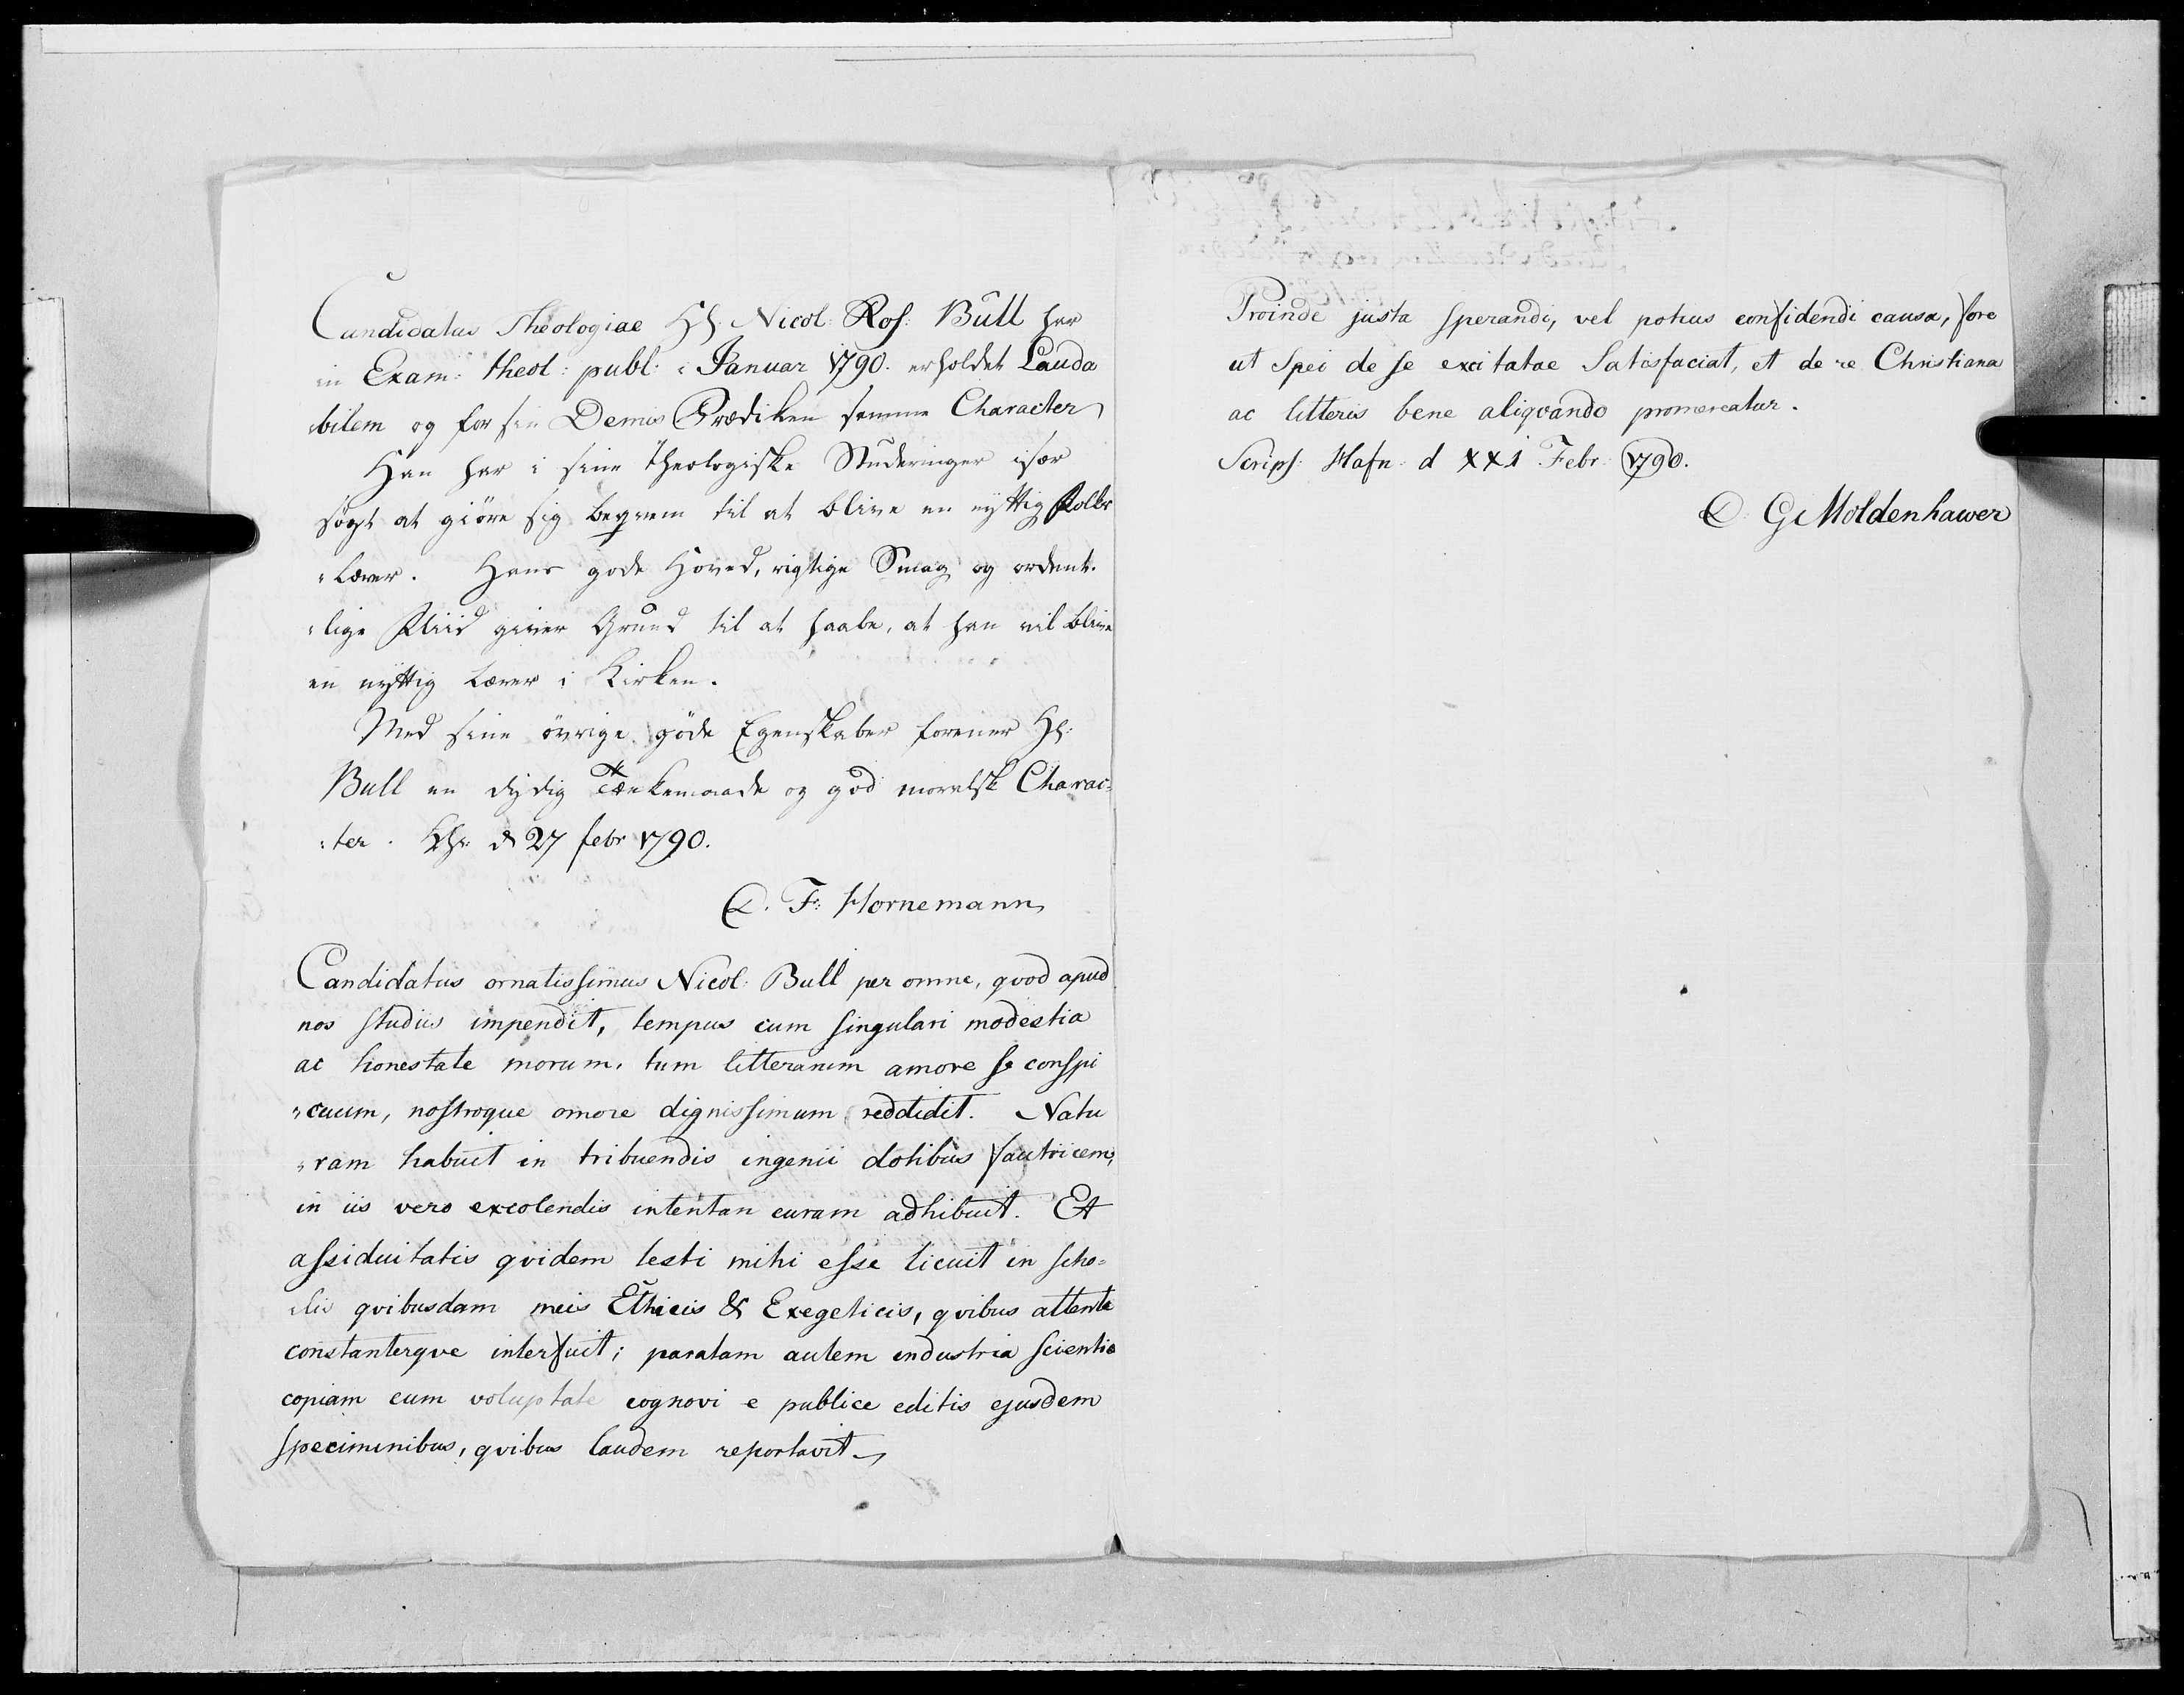 Candidatus Theologiae Hr. Nicol: Ros: Bull har
in Exam: theol: publ: i Januar 1790. erholdet Lauda
bilem og for sin Demis Prædiken samme Character
Han har i sine theologiske Studeringer især
søgt at giöre sig beqvem til at blive en nyttig Folke
"Lærer. Hans gode Hoved, rigtige Smag og ordent-
"lige Fliid giver Grund til at haabe, at han vil blive
en nyttig Lærer i Kirken.
Med sine övrige gode Egenskaber forener Hr:
Bull en dydig Tænkemaade og god moralsk Charac-
:ter. Khr: d 27 febr 1790.
C. F: Hornemann
Candidatus ornatissimus Nicol: Bull per omne, qvod apud
nos studiis impendit, tempus cum singulari modestia
ac honestate morum, tum litterarum amore se conspi
"cuum, nostroque amore dignissimum reddidit. Natu
"ram habuit in tribuendis ingenii dotibus fautricem,
in iis vero excolendis intentan curam adhibuit. Et
assiduitatis qvidem testi mihi esse licuit in scho=
lis qvibusdam meis Ethicis & Exegeticis, qvibus attente
constanterqve interfuit; paratam autem industria scientiæ
copiam cum voluptate cognovi e publice editis ejusdem
speciminibus, qvibus laudem reportavit
Proinde justa sperandi, vel potius confidendi causa, fore
ut Spei de se excitatae Satisfaciat, et de re Christiana
ac litteris bene aliqvando promereatur.
Scrips: Hafn: d XXI Febr: 1790.
D. G. Moldenhawer